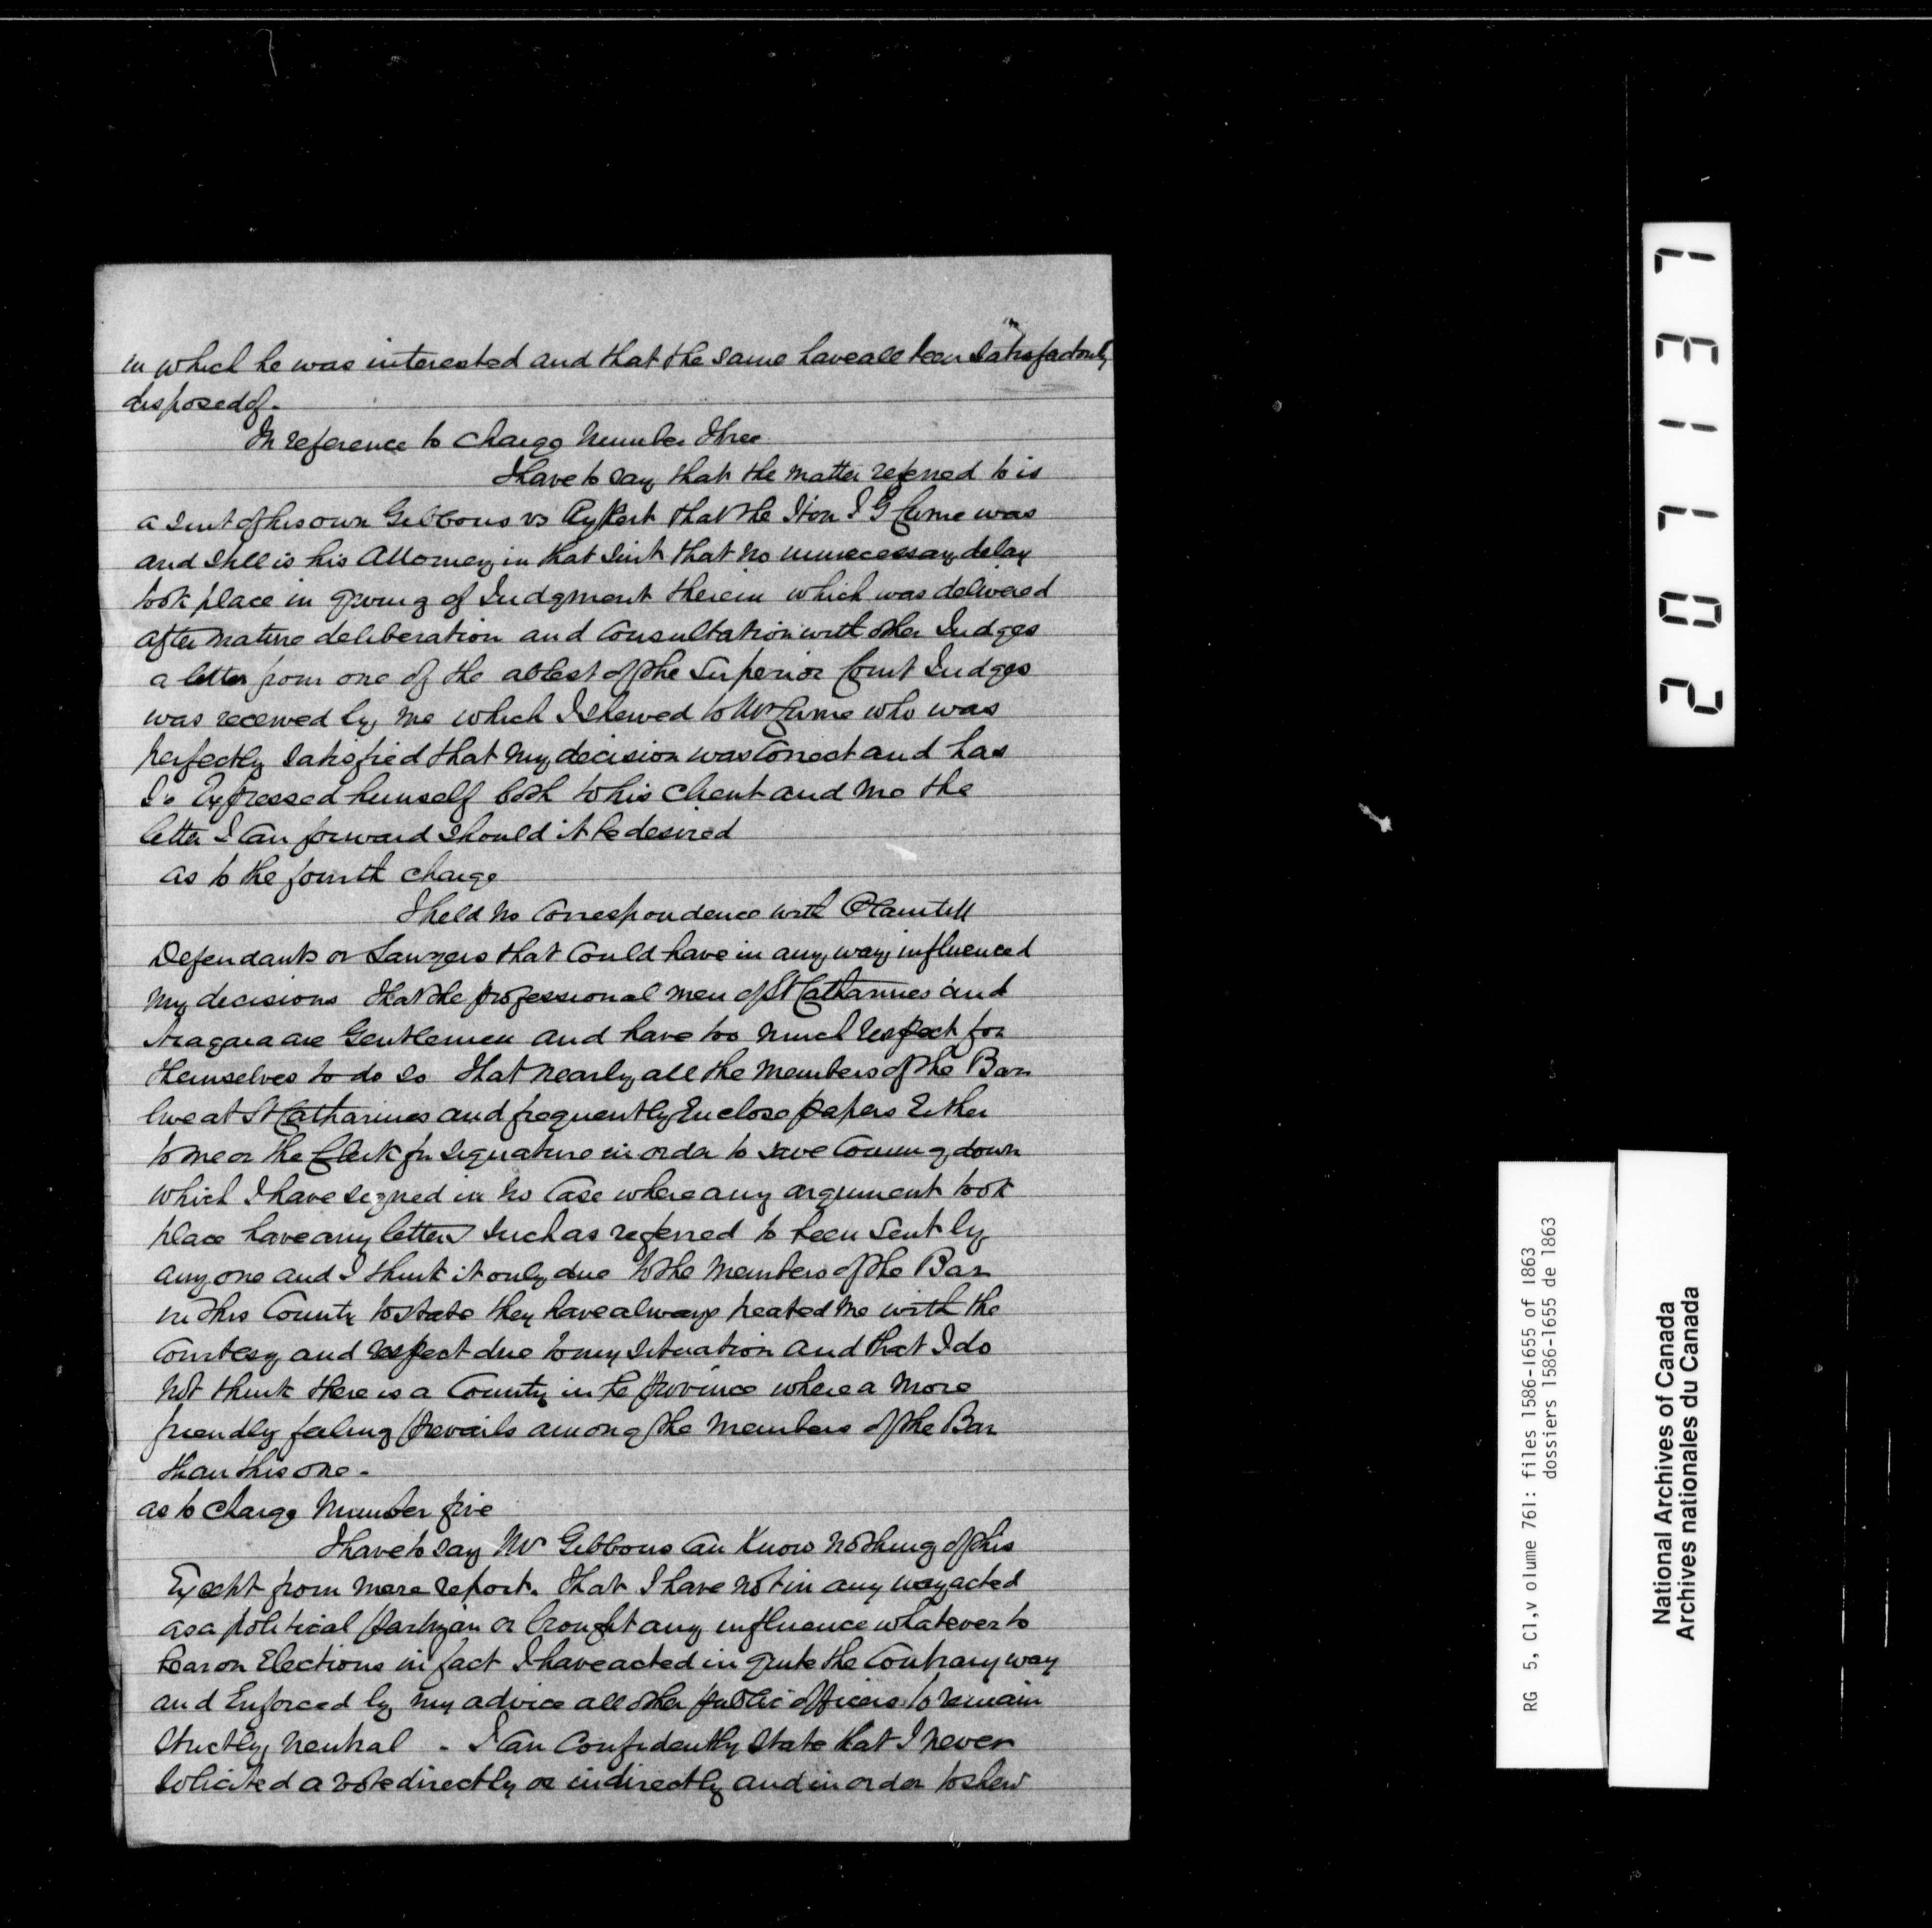 in which he was interested and that the same have all been satisfactorily
disposed of.
In reference to Charge Number Three
I have to say that the matter referred to is
a suit of his own Gibbons vs Rykert that the Hon J G Currie was
and still is his Attorney in that suit that no unnecessary delay
took place in giving of Judgment therein which was delivered
after mature deliberation and Consultation with other Judges
a letter from one of the ablest of the Superior Court Judges
was received by me which I shewed to Mr Currie who was
perfectly satisfied that my decision was Correct and has
so Expressed himself both to his client and me the
letter I can forward should it be desired
as to the fourth charge
I held no Correspondence with Plaintiff
Defendants or Lawyers that Could have in any way influenced
my decisions that the professional men of St Catharines and
Niagara are Gentlemen and have too much respect for
themselves to do so that nearly all the Members of the Bar
live at St Catharines and frequently Enclose papers Either
to me or the Clerk for signature in order to save Coming down
which I have signed in no Case where any argument took
place have any letters such as referred to been sent by
any one and I think it only due to the Members of the Bar
in this County to state they have always treated me with the
Courtesy and respect due to my situation and that I do
not think there is a County in the province where a more
friendly feeling prevails among the Members of the Bar
than this one.
as to Charge Number five
I have to say Mr Gibbons can Know nothing of this
Except from mere report. that I have not in any way acted
as a political partizan or brought any influence whatever to
bear on Elections in fact I have acted in quite the Contrary way
and Enforced by my advice all other public officers to remain
strictly neutral - I can Confidently state that I never
solicited a vote directly or indirectly and in order to shew
207137
RG 5, C1,v olume 761: files 1586-1655 of 1863
dossiers 1586-1655 de 1863
National Archives of Canada
Archives nationales du Canada